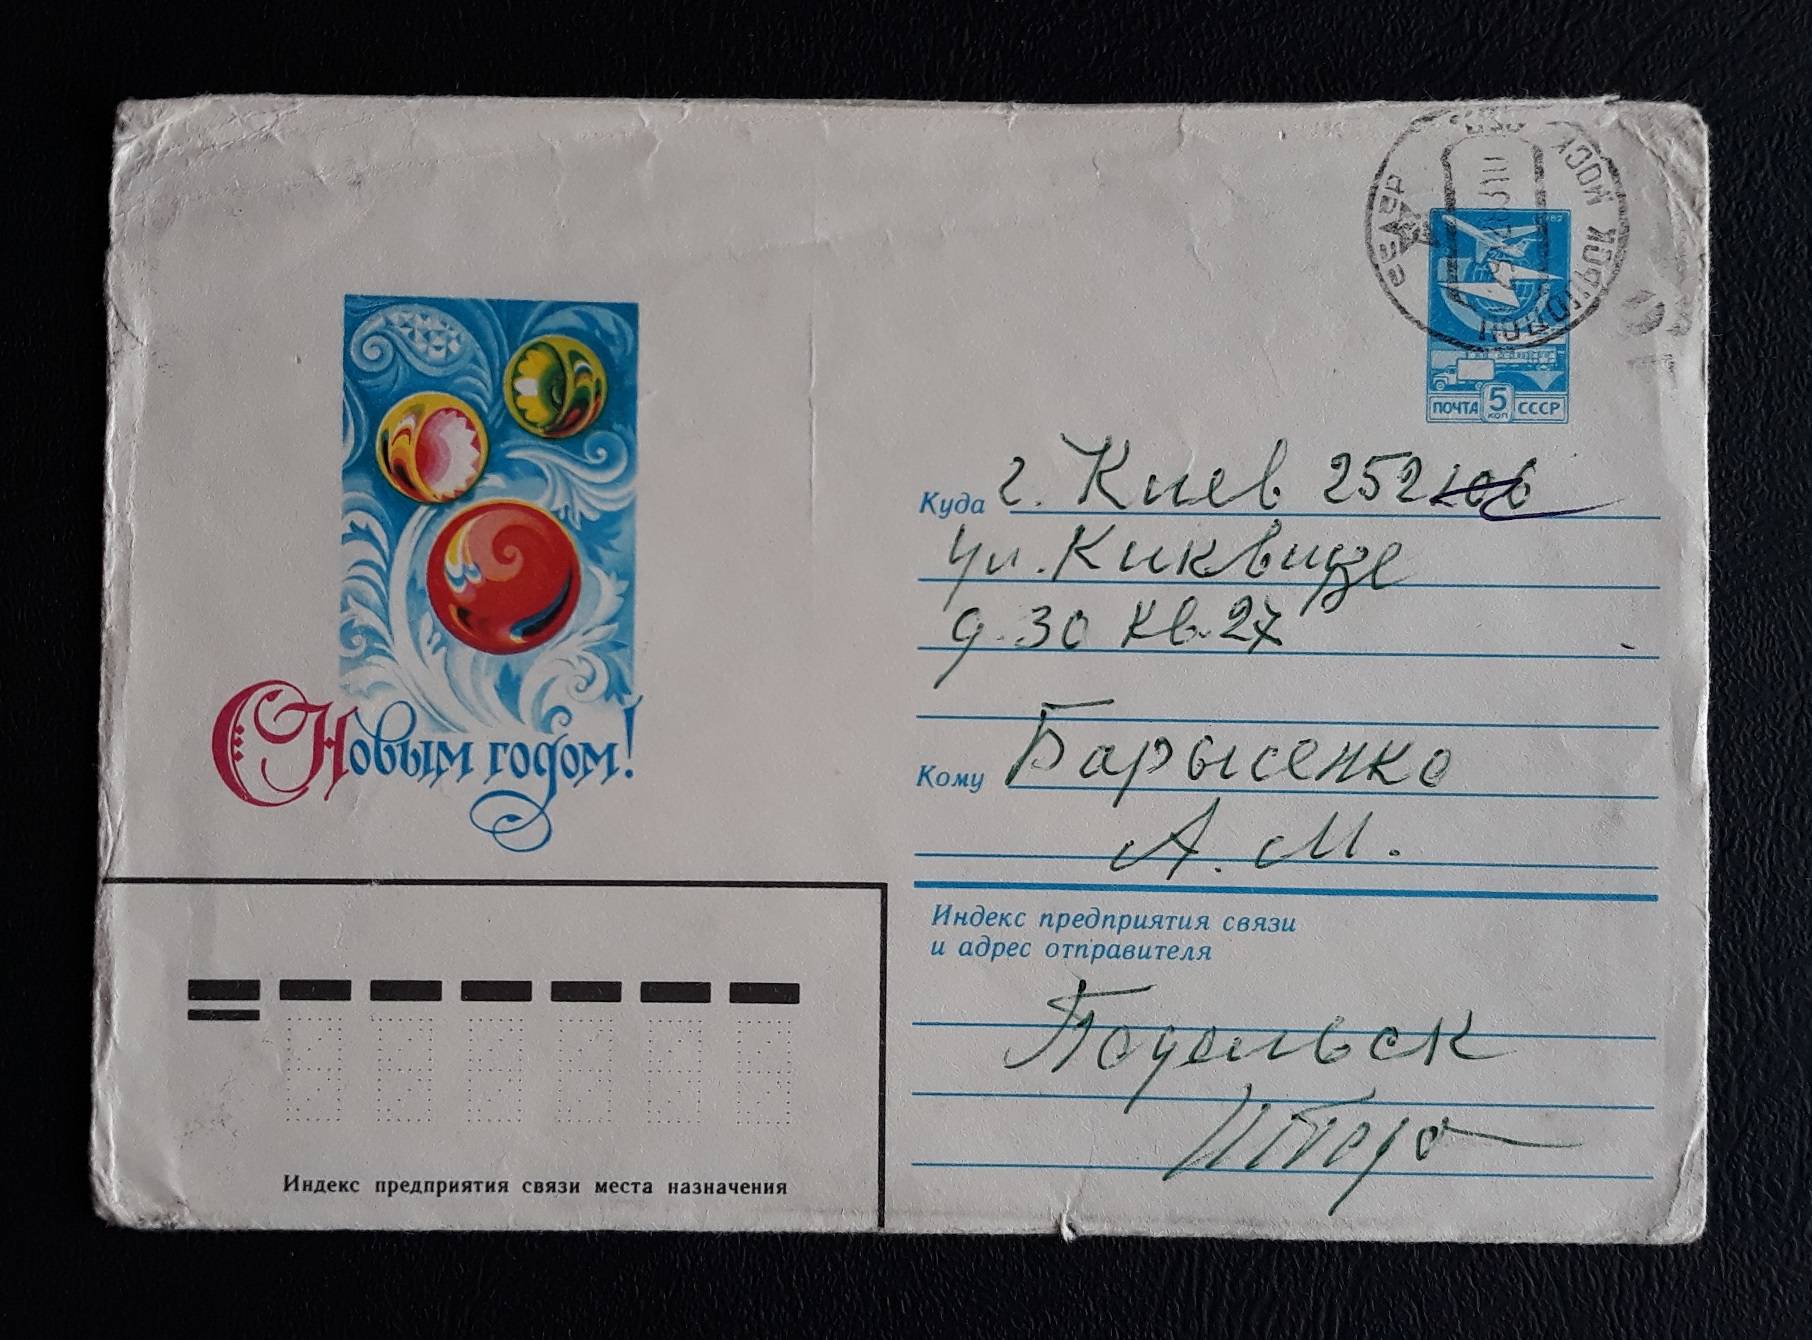 СССР
ПОДОЛЬСК МОСК
ПОЧТА 5 КОП СССР
С Новым годом!
Куда г. Киев 252
ул. Киквидзе
д. 30 кв. 27
Кому Барысенко
А. М.
Индекс предприятия связи
и адрес отправителя
Подольск
Индекс предприятия связи места назначения